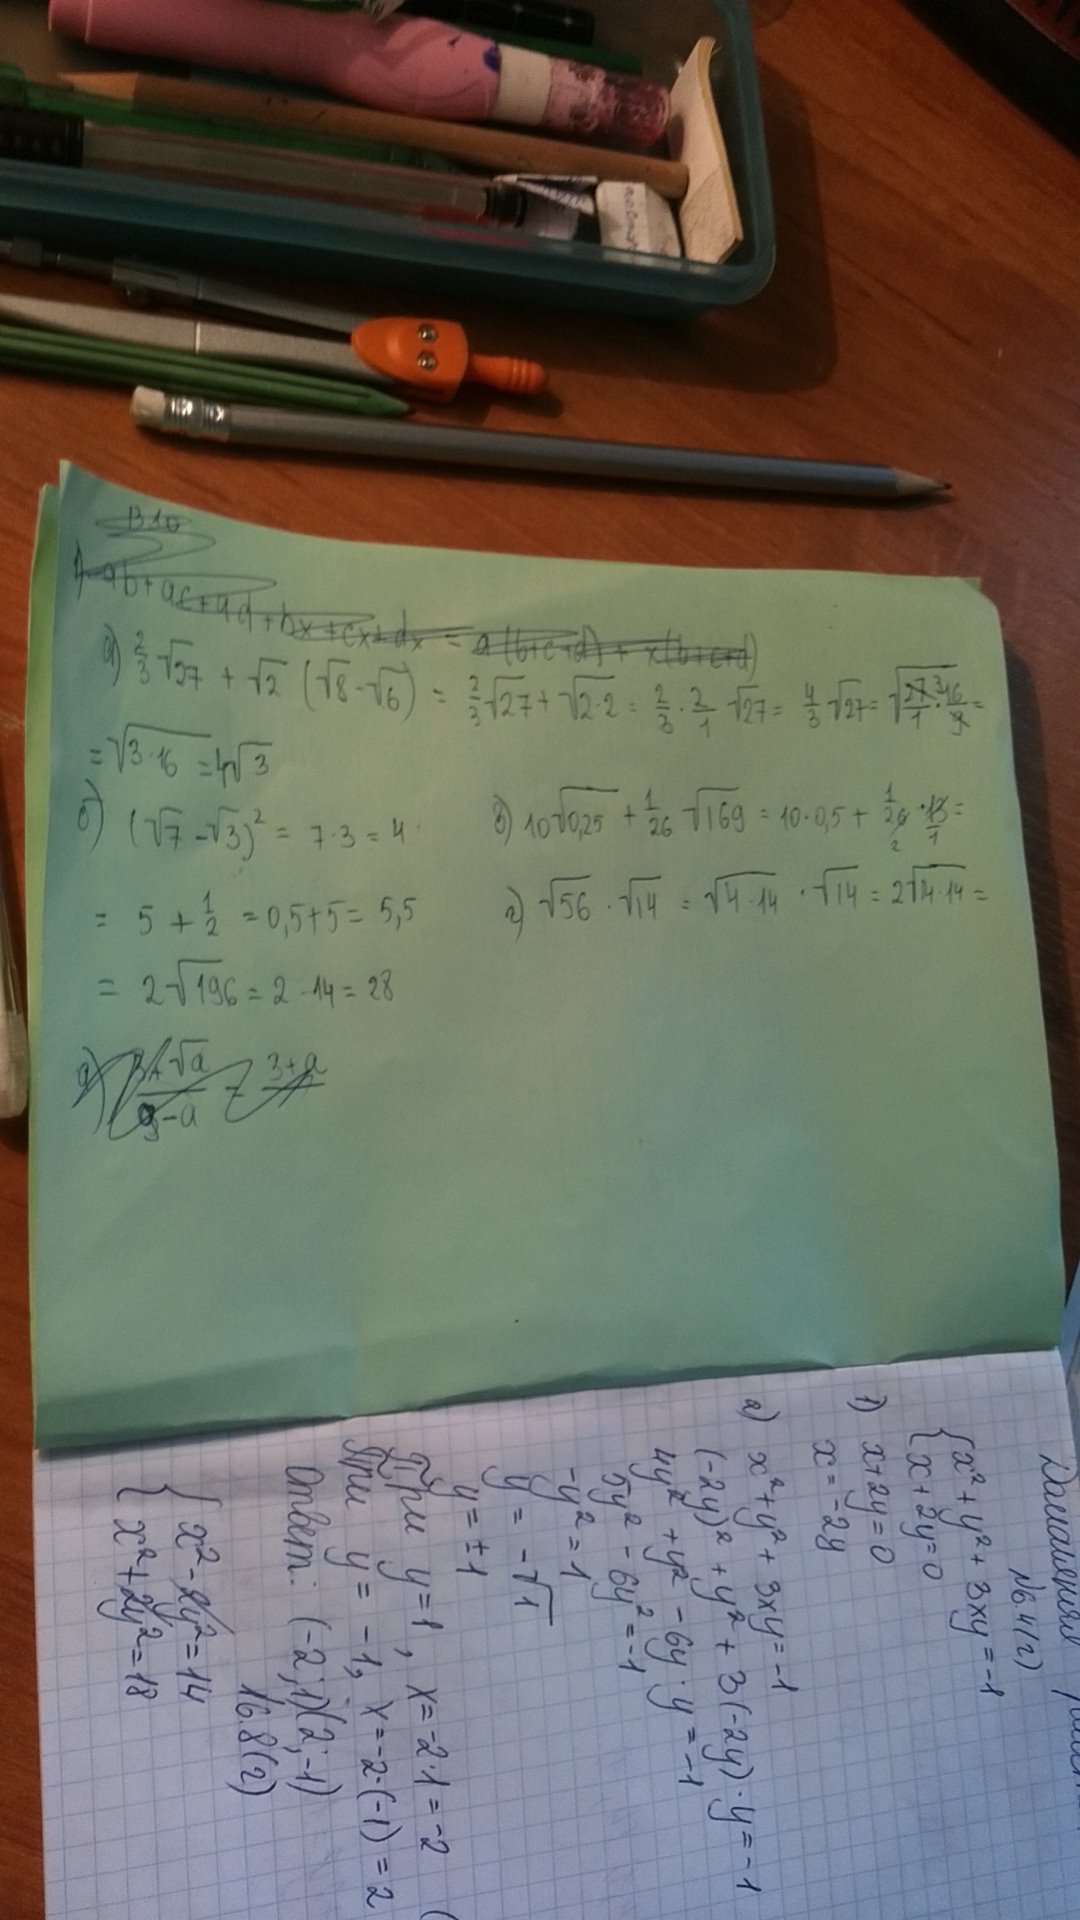 В10
1) ab+ac+ad+bx+cx+dx = a(b+c+d) + x(b+c+d)
а) 2/3 √27 + √2 (√8-√6) = 2/3 √27 + √2·2 = 2/3 · 2/1 √27 = 4/3 √27 = √27/1 · 16/9 =
= √3·16 = 4√3
б) (√7-√3)² = 7·3 = 4
в) 10√0,25 + 1/26 √169 = 10·0,5 + 1/26 · 13/1 =
= 5 + 1/2 = 0,5+5 = 5,5
г) √56 · √14 = √4·14 · √14 = 2√14·14 =
= 2√196 = 2·14 = 28
3+√a / 9-a = 3+a
Домашняя
№6.4(г)
{x²+y²+3xy=-1
{x+2y=0
1) x+2y=0
x=-2y
2) x²+y²+3xy=-1
(-2y)²+y²+3(-2y)·y=-1
4y²+y²-6y·y=-1
5y²-6y²=-1
-y²=1
y=-√1
y=±1
При y=1, x=-2·1=-2
При y=-1, x=-2·(-1)=2
Ответ: (-2;1)(2;-1)
№6.8(г)
{x²-2y²=14
{x²+2y²=18